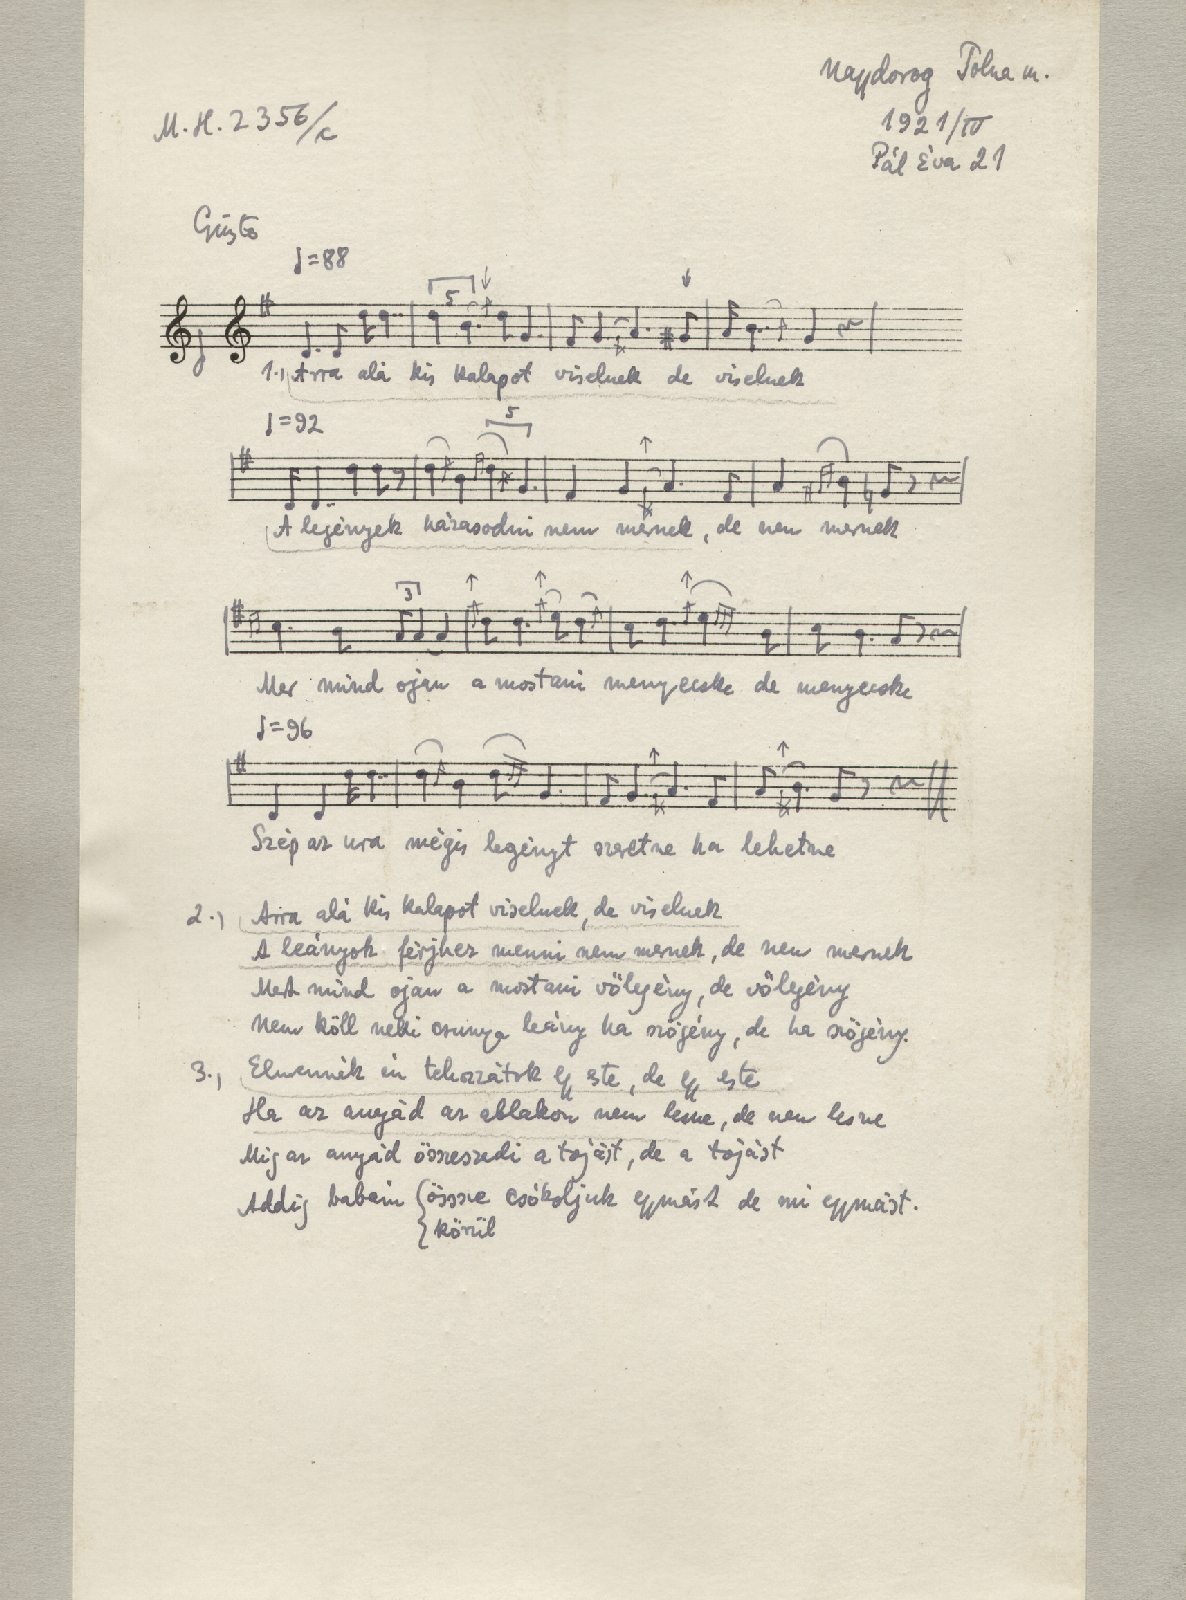 Nagydorog Tolna m.
M.H. 2356/c
1921/IV
Pál Éva 21
Giusto
♩=88
5
1., Arra alá kis kalapot viselnek de viselnek
♩=92
5
A legények házasodni nem mernek, de nem mernek
3
Mer mind ojan a mostani menyecske de menyecske
♩=96
Szép az ura mégis legényt szeretne ha lehetne
2., Arra alá kis kalapot viselnek, de viselnek
A leányok férjhez menni nem mernek, de nem mernek
Mert mind ojan a mostani völegény, de völegény
Nem köll neki csunya leány ha szögény, de ha szögény.
3., Elmennék én tehozzátok egy este, de egy este
Ha az anyád az ablakon nem lesne, de nem lesne
Mig az anyád összeszedi a tojást, de a tojást
Addig babám össze csókoljuk egymást de mi egymást.
körül